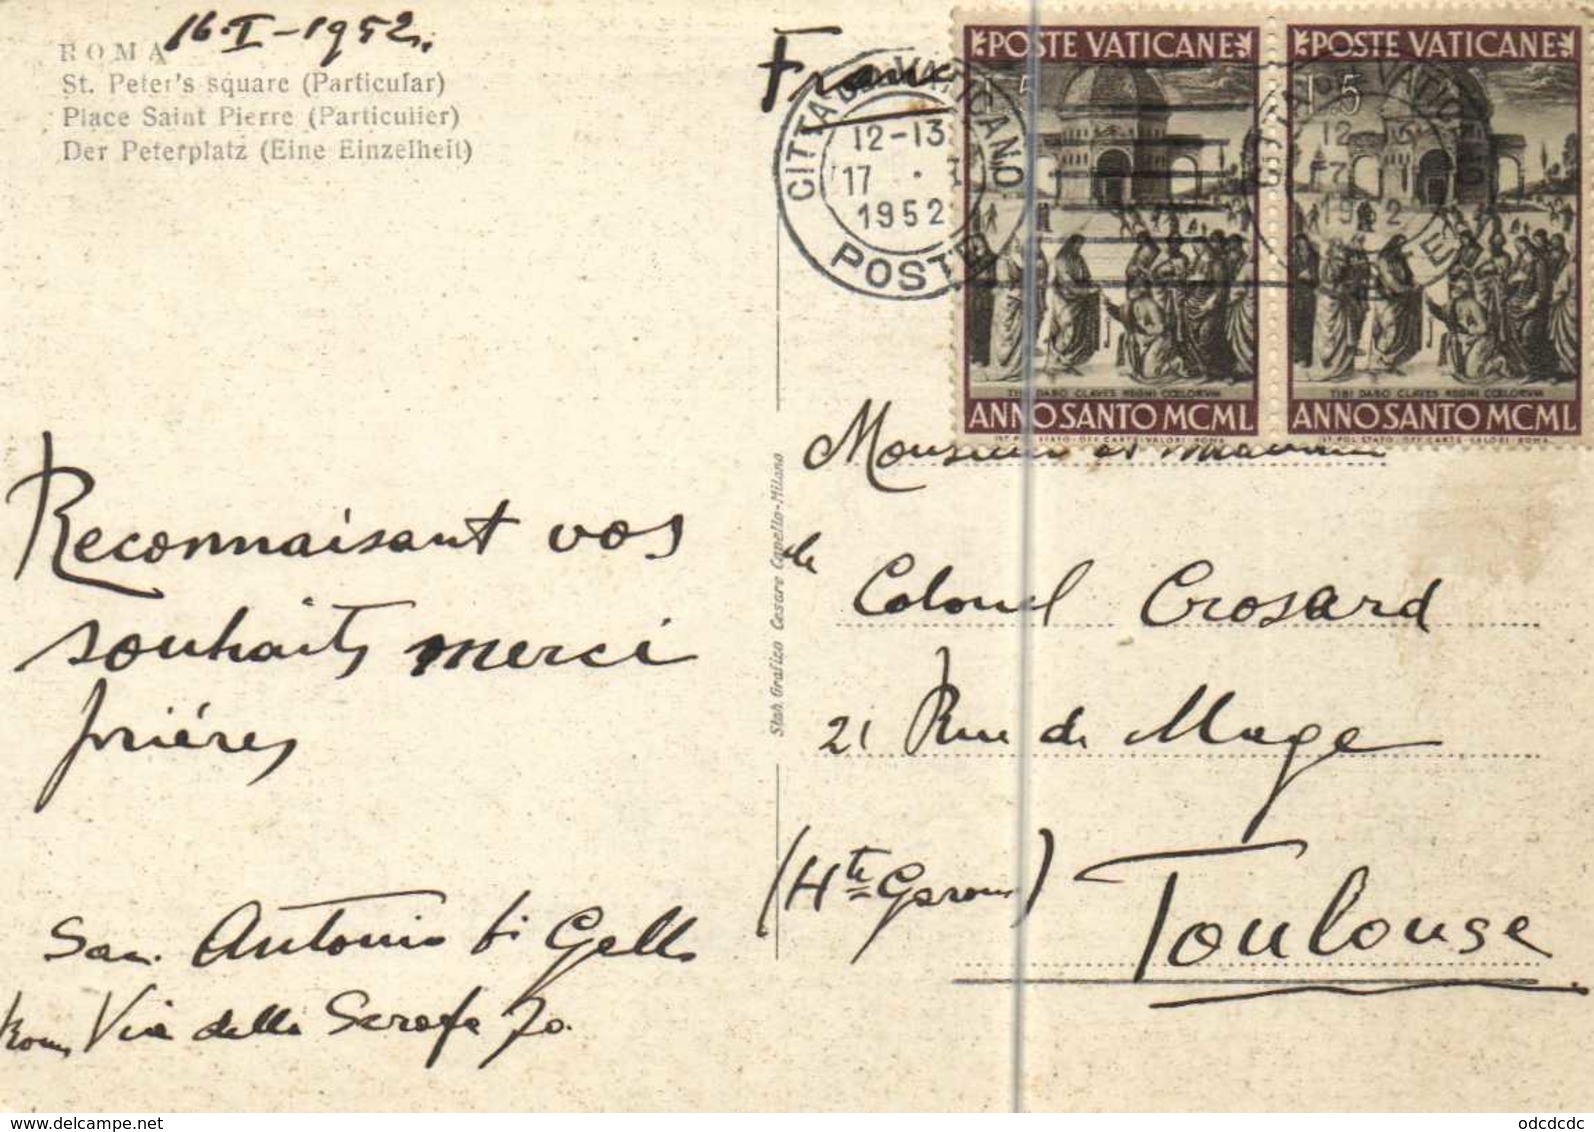 16-I-1952
ROMA
St. Peter's square (Particular)
Place Saint Pierre (Particulier)
Der Peterplatz (Eine Einzelheit)
Reconnaisant vos
souhaits merci
prières
San Antonio
Via della Scrofa 70.
Stab. Grafico Cesare Capello-Milano
France
CITTA DEL VATICANO
12-13
17 · I
1952
POSTE
POSTE VATICANE
L 5
TIBI DABO CLAVES REGNI CŒLORVM
ANNO SANTO MCML
IST. POL. STATO · OFF. CARTE-VALORI ROMA
POSTE VATICANE
L 5
TIBI DABO CLAVES REGNI CŒLORVM
ANNO SANTO MCML
IST. POL. STATO · OFF. CARTE-VALORI ROMA
Monsieur et Madame
le
Colonel Crosard
21 Rue de Mage
(Hte Garonne)
Toulouse
odcdcdc